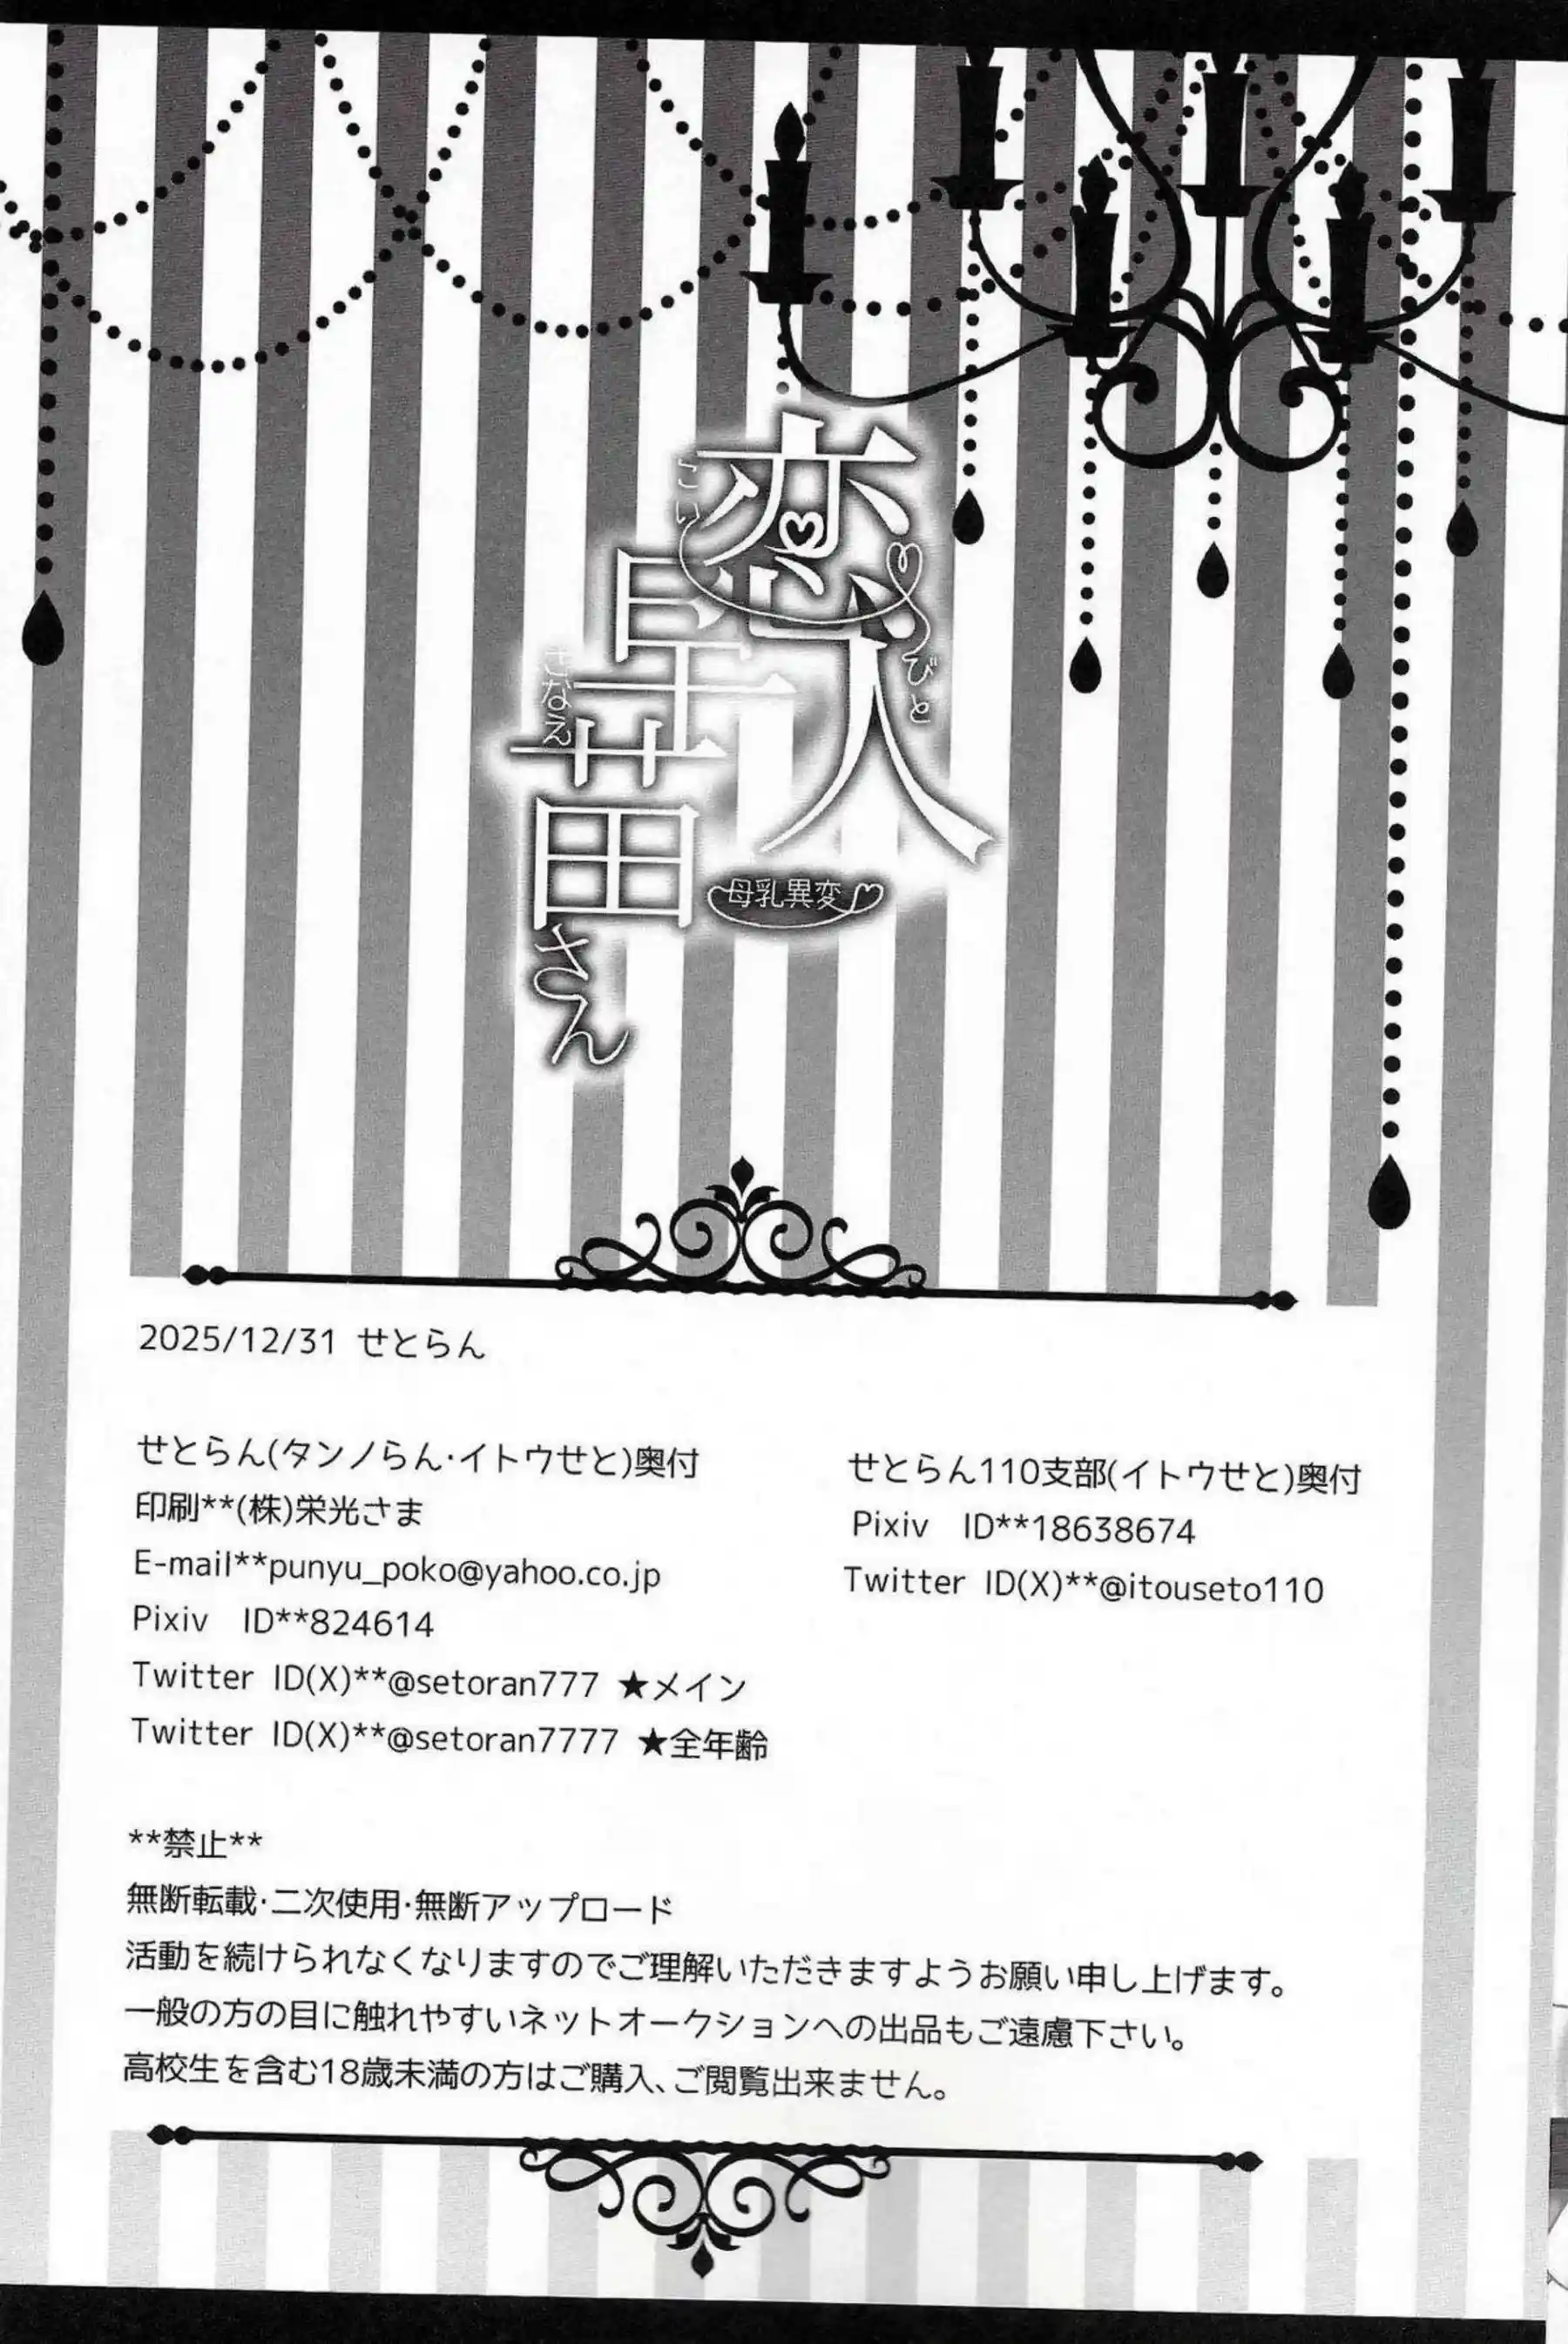 恋人
こい
びと
早苗さん
さなえ
母乳異変
2025/12/31 せとらん
せとらん(タンノらん･イトウせと)奥付
印刷**(株)栄光さま
E-mail**punyu_poko@yahoo.co.jp
Pixiv　ID**824614
Twitter ID(X)**@setoran777 ★メイン
Twitter ID(X)**@setoran7777 ★全年齢
せとらん110支部(イトウせと)奥付
Pixiv　ID**18638674
Twitter ID(X)**@itouseto110
**禁止**
無断転載･二次使用･無断アップロード
活動を続けられなくなりますのでご理解いただきますようお願い申し上げます。
一般の方の目に触れやすいネットオークションへの出品もご遠慮下さい。
高校生を含む18歳未満の方はご購入、ご閲覧出来ません。